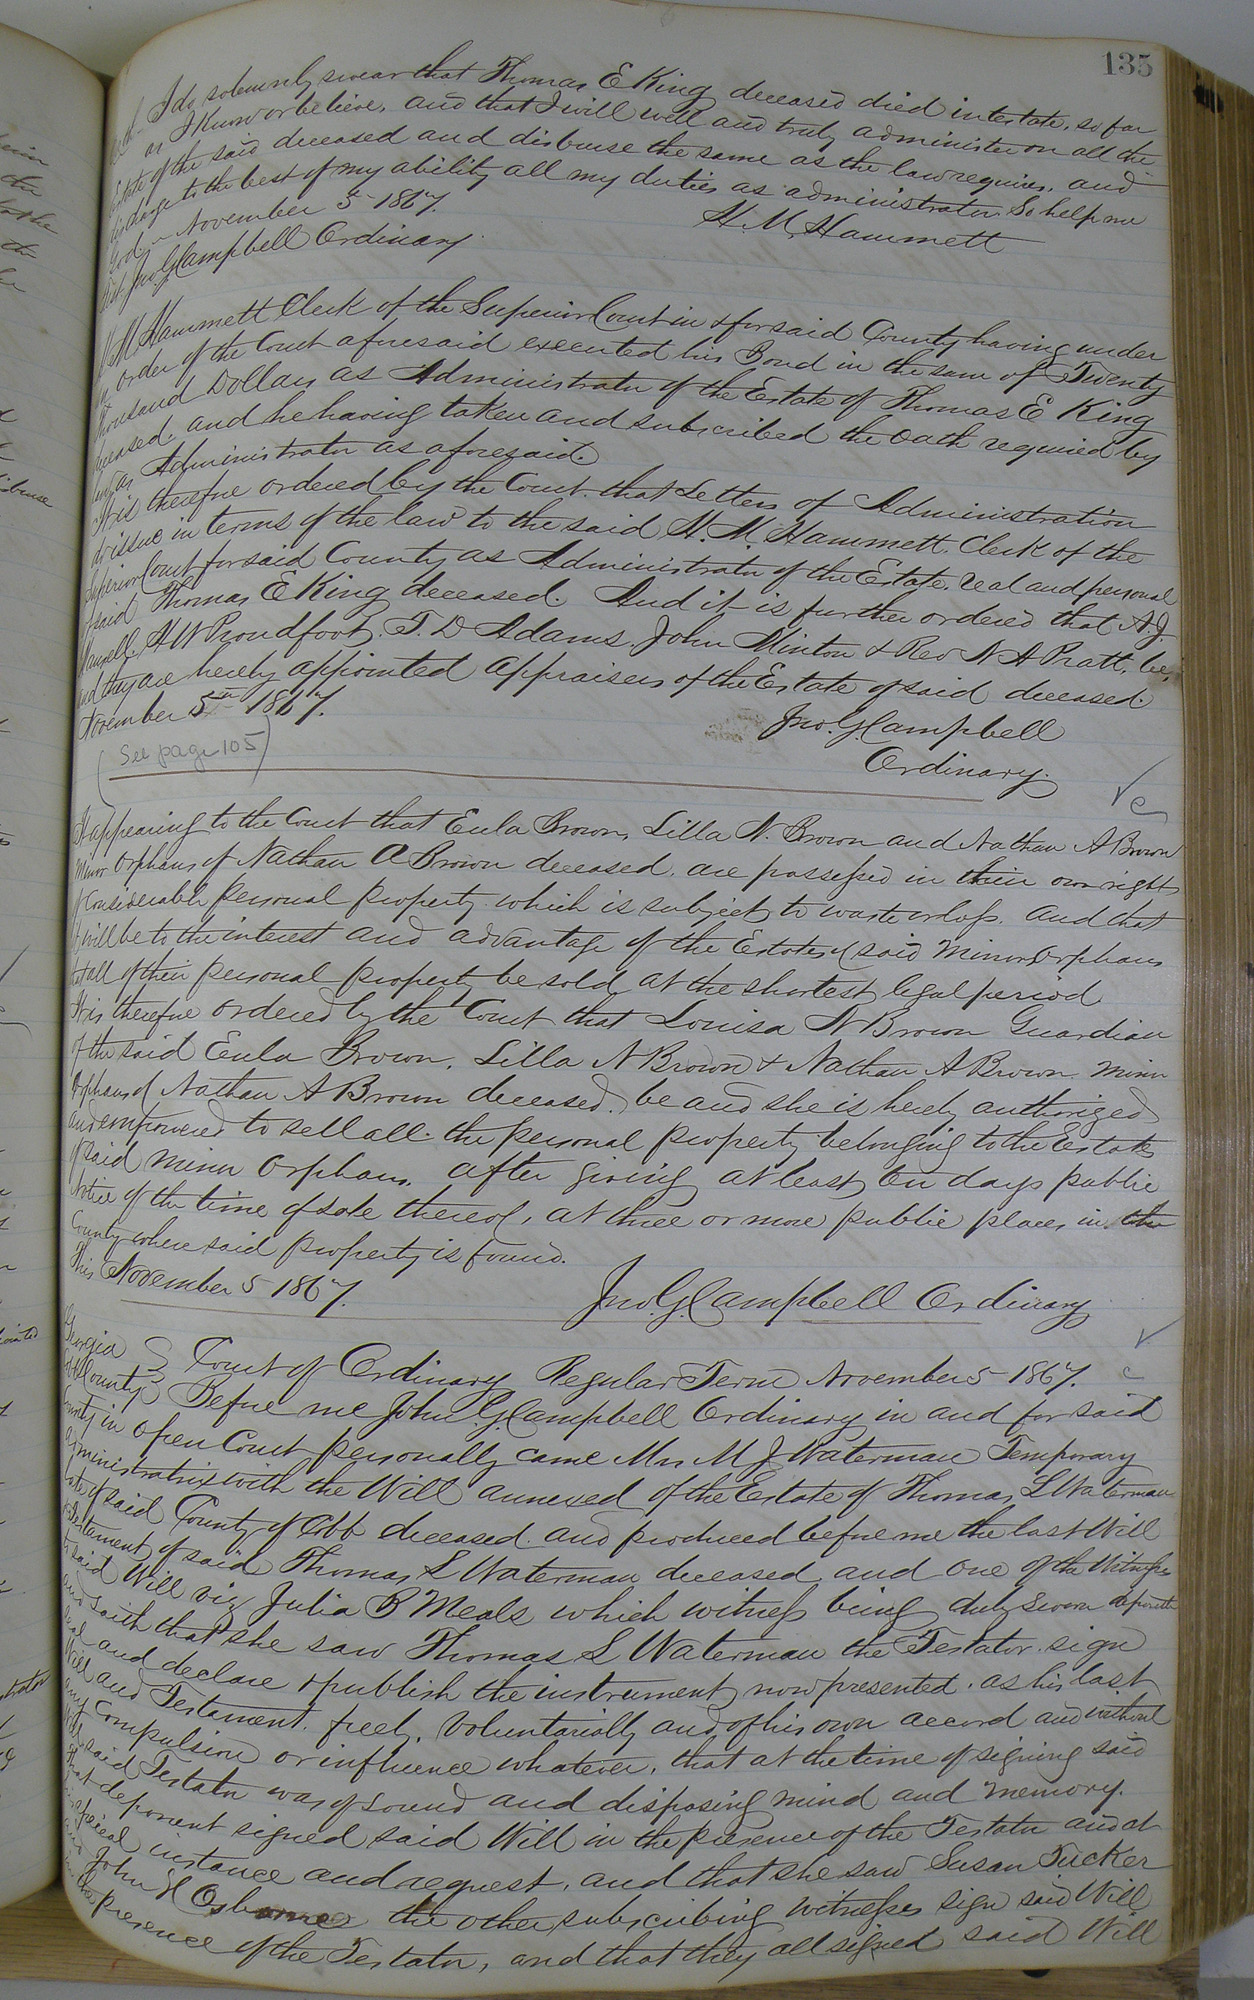 135
Oath I do solemnly swear that Thomas E King deceased died intestate, so far
as I know or believe, and that I will well and truly administer on all the
Estate of the said deceased and disburse the same as the law requires, and
discharge to the best of my ability all my duties as administrator. So help me
God. November 5 1867. H. M. Hammett
Jno. G. Campbell Ordinary.
H. M. Hammett Clerk of the Superior Court in & for said County having under
an order of the Court aforesaid executed his Bond in the sum of Twenty
thousand Dollars as Administrator of the Estate of Thomas E King
deceased. and he having taken and subscribed the oath required by
law as Administrator as aforesaid.
It is therefore ordered by the Court. that Letters of Administration
do issue in terms of the law to the said H. M. Hammett. Clerk of the
Superior Court for said County as Administrator of the Estate. real and personal
of said Thomas E King deceased. And it is further ordered that A. J.
Mansell. H W Proudfoot. T. D Adams John Minton & Rev N A Pratt. be,
and they are hereby appointed appraisers of the Estate of said deceased.
November 5th 1867. Jno. G. Campbell
(See page 105) Ordinary.
It appearing to the Court that Eula Brown, Lilla N. Brown and Nathan A Brown
minor Orphans of Nathan A Brown deceased. are possessed in their own right
of Considerable personal property which is subject to waste or loss. and that
it will be to the interest and advantage of the Estates of said minor Orphans
that all of their personal property be sold at the shortest legal period
It is therefore ordered by the Court that Louisa N Brown Guardian
of the said Eula Brown. Lilla N Brown & Nathan A Brown minor
Orphans of Nathan A Brown deceased. be and she is hereby authorized
and empowered to sell all. the personal property belonging to the Estate
of said minor Orphans. after giving at least ten days public
Notice of the time of sale thereof, at three or more public places in the
County where said property is found.
This November 5 1867. Jno. G. Campbell Ordinary
Georgia } Court of Ordinary Regular Term November 5 1867.
Cobb County } Before me John G. Campbell Ordinary in and for said
County in open Court personally came Mrs M J Waterman Temporary
administratrix with the Will annexed of the Estate of Thomas L Waterman
late of said County of Cobb deceased. and produced before me the last Will
& Testament of said Thomas L Waterman deceased and one of the Witnesses
to said Will viz Julia B Meals which witness being duly sworn deposeth
and saith that she saw Thomas L Waterman the Testator. sign
seal and declare & publish the instrument now presented. as his last
Will and Testament. freely, voluntarially and of his own accord and without
any Compulsion or influence whatever, that at the time of signing said
Will said Testator was of sound and disposing mind and memory.
that deponent signed said Will in the presence of the Testator and at
his special instance and request, and that she saw Susan Tucker
and John H Osborne the other subscribing witnesses sign said Will
in the presence of the Testator, and that they all signed said Will